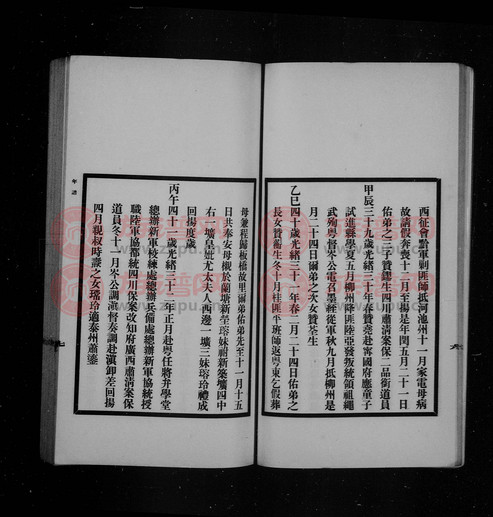 西征會黔軍剿匪師抵河池州十一月家電母病
故請假奔喪十二月至揚是年閏五月二十一日
佑弟之二子贊鎔生四川肅清案保二品銜道員
甲辰三十九歲光緒三十年春贊堯赴甯國府應童子
試進縣學夏五月柳州降匪陸亞發叛統領祖繩
武殉粵督岑公電召墨絰從軍秋九月抵柳州是
月二十四日爾弟之次女贊荃生
乙巳四十歲光緒三十一年春二月二十四日佑弟之
長女贊生冬十月桂匪平班師返粵東乞假葬
母兼程歸板橋故里爾弟佑弟先至十一月十五
日共奉安母櫬於蘭塘新塋瑢妹祔新築壙四中
右一壙皇妣尤太夫人西邊一壙三妹瑢玲禮成
回揚度歲
丙午四十一歲光緒三十二年正月赴粵任將弁學堂
總辦新軍校練處總辦兵備處總辦新軍協統授
職陸軍協都統四川保案改知府廣西肅清案保
道員冬十一月岑公調滇督奏調赴滇卸差回揚
四月親叔時叢之女瑤玲適泰州蕭鎏
年譜